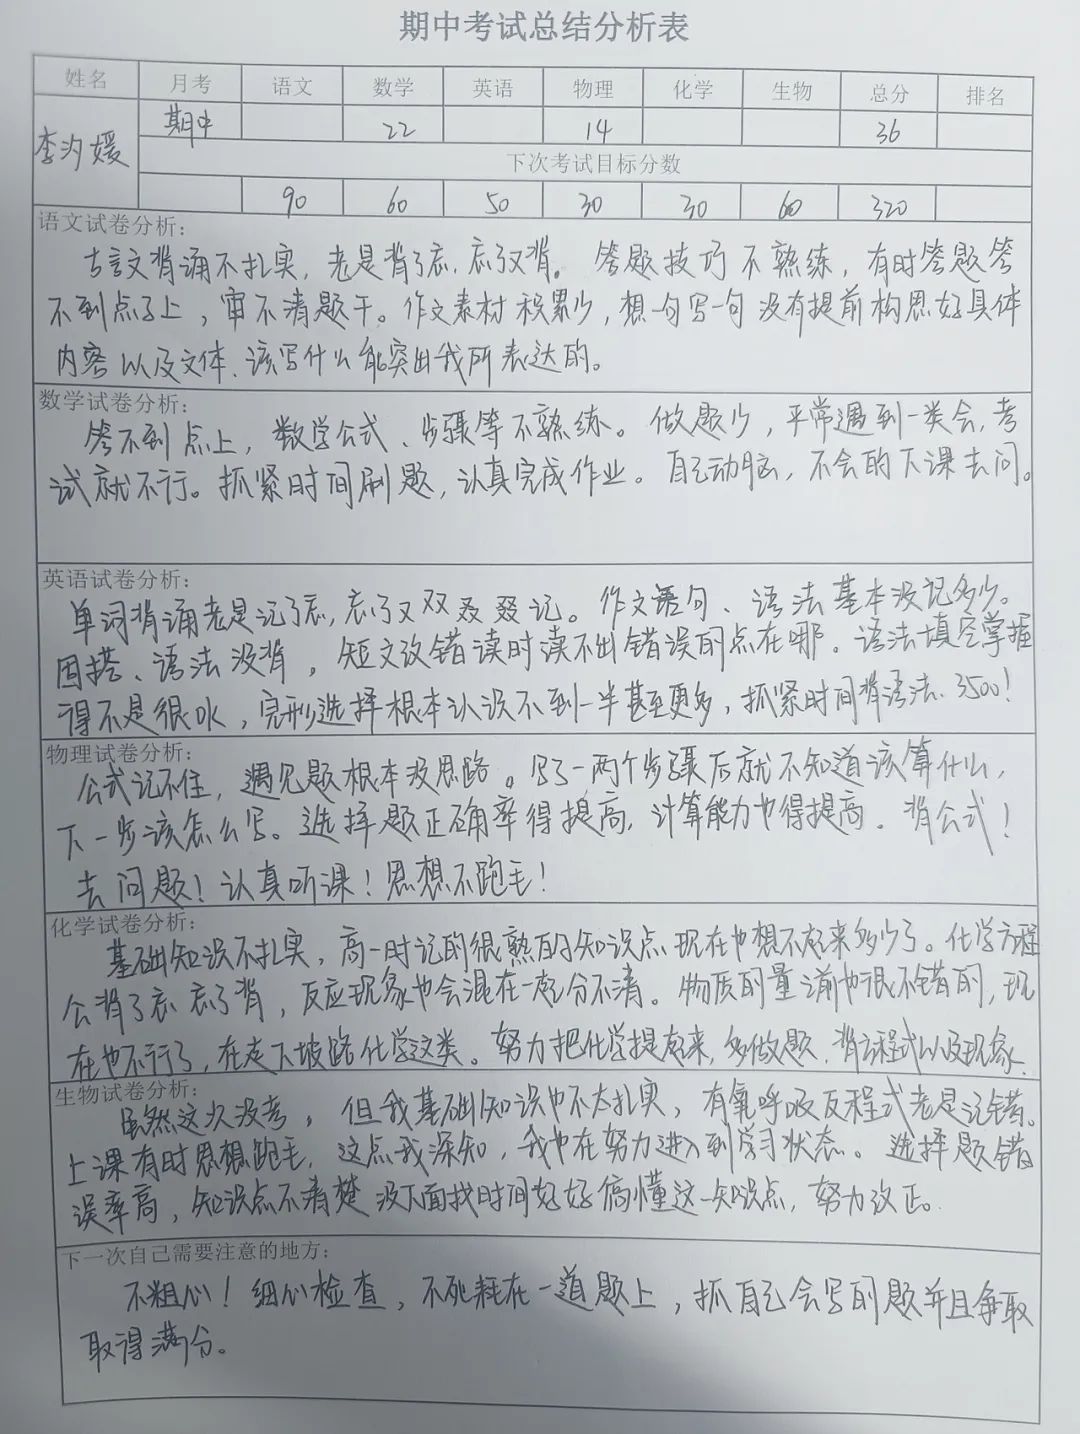 期中考试总结分析表
姓名 月考 语文 数学 英语 物理 化学 生物 总分 排名
李汐媛 期中 22 14 36
下次考试目标分数
90 60 50 30 30 60 320
语文试卷分析:
古言文背诵不扎实，老是背了忘，忘了又背。答题技巧不熟练，有时答题答
不到点子上，审不清题干。作文素材积累少，想一句写一句没有提前构思好具体
内容以及文体、该写什么能突出我所表达的。
数学试卷分析:
答不到点上，数学公式、步骤等不熟练。做题少，平常遇到一类会，考
试就不行。抓紧时间刷题，认真完成作业。自己动脑，不会的下课去问。
英语试卷分析:
单词背诵老是记了忘，忘了又双叒叕记。作文语句、语法基本没记多少。
固搭、语法没背，短文改错读时读不出错误的点在哪。语法填空掌握
得不是很水，完形选择根本认识不到一半甚至更多，抓紧时间背语法、3500！
物理试卷分析:
公式记不住，遇见题根本没思路。写了一两个步骤后就不知道该算什么，
下一步该怎么写。选择题正确率得提高，计算能力也得提高。背公式！
去问题！认真听课！思想不跑毛！
化学试卷分析:
基础知识不扎实，高一时记的很熟的知识点现在也想不起来多少了。化学方程
公背了忘忘了背，反应现象也会混在一起分不清。物质的量之前也很不错的，现
在也不行了，在走下坡路化学这类。努力把化学提起来，多做题、背方程式以及现象
生物试卷分析:
虽然这次没考，但我基础知识也不太扎实，有氧呼吸反程式老是记错。
上课有时思想跑毛，这点我深知，我也在努力进入到学习状态。选择题错
误率高，知识点不清楚没下面找时间好好搞懂这一知识点，努力改正。
下一次自己需要注意的地方:
不粗心！细心检查，不死耗在一道题上，抓自己会写的题并且争取
取得满分。